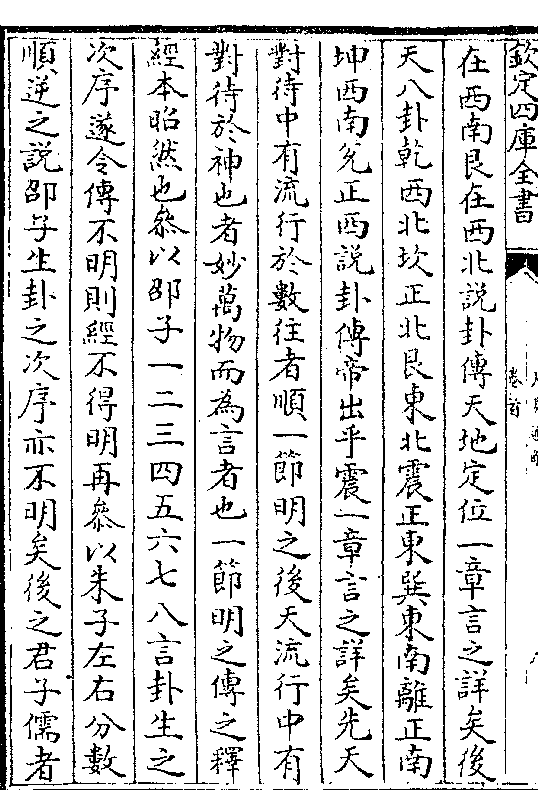 欽定四庫全書
卷首
在西南艮在西北說卦傳天地定位一章言之詳矣後
天八卦乾西北坎正北艮東北震正東巽東南離正南
坤西南兊正西說卦傳帝出乎震一章言之詳矣先天
對待中有流行於數往者順一節明之後天流行中有
對待於神也者妙萬物而為言者也一節明之傳之釋
經本昭然也叅以邵子一二三四五六七八言卦生之
次序遂令傳不明則經不得明再叅以朱子左右分數
順逆之說邵子生卦之次序亦不明矣後之君子儒者